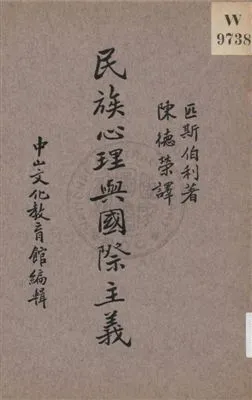 W
9738
匹斯伯利著
陳德榮譯
民族心理與國際主義
中山文化教育館編輯